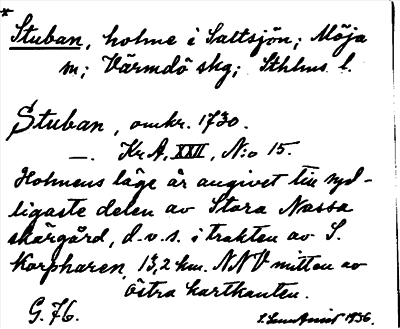 * Stuban, holme i Saltsjön; Möja
sn; Värmdö skg; Sthlms l.
Stuban, omkr. 1730.
—. Kr A, XXII, N:o 15.
Holmens läge är angivet till syd-
ligaste delen av Stora Nassa
skärgård, d.v.s. i trakten av S.
Korpharen, 13,2 km. NNV mitten av
östra kartkanten.
G. 76.
1936.